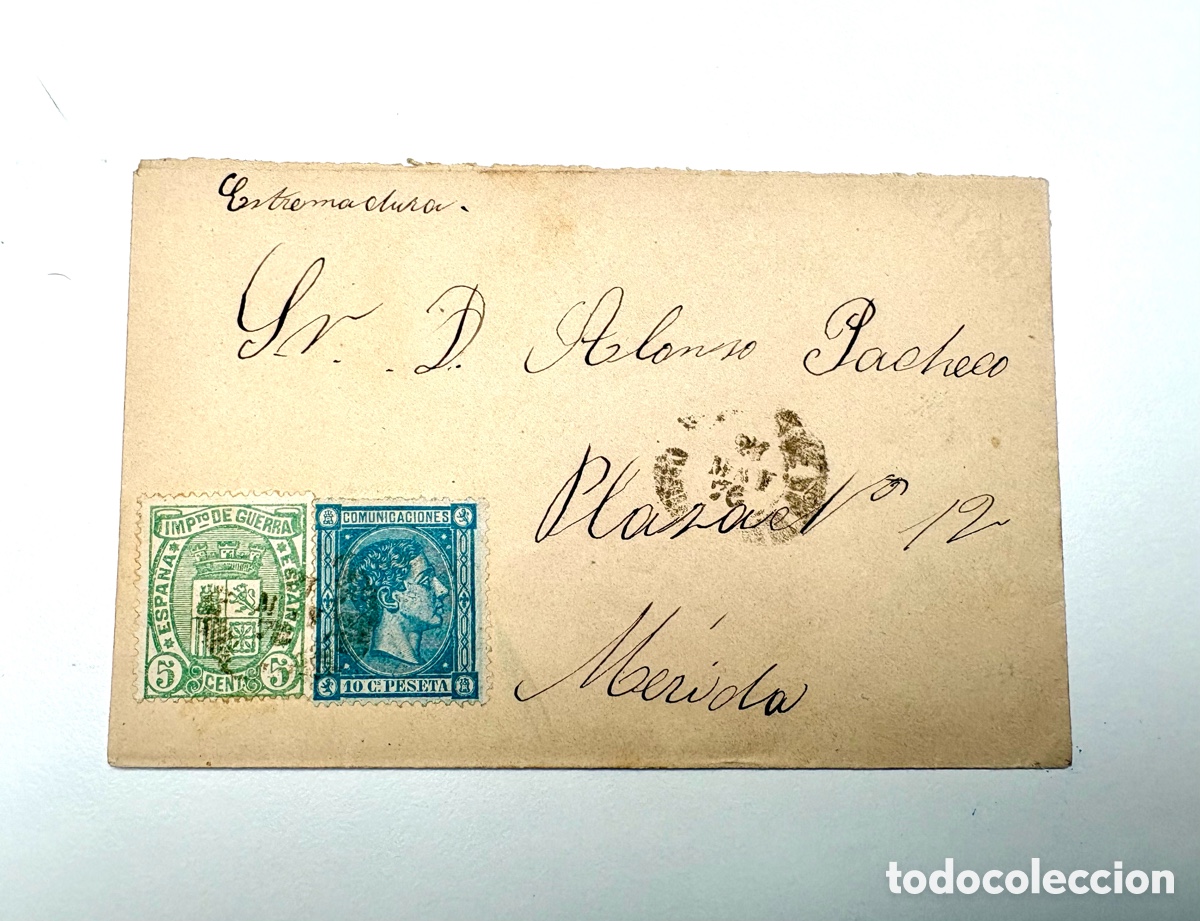 Estremadura.
Sr. D. Alonso Pacheco
Plaza Nº 12
Mérida
IMPTO DE GUERRA
ESPAÑA
ESPAÑA
5 CENT. 5
COMUNICACIONES
10 Cs PESETA
todocoleccion